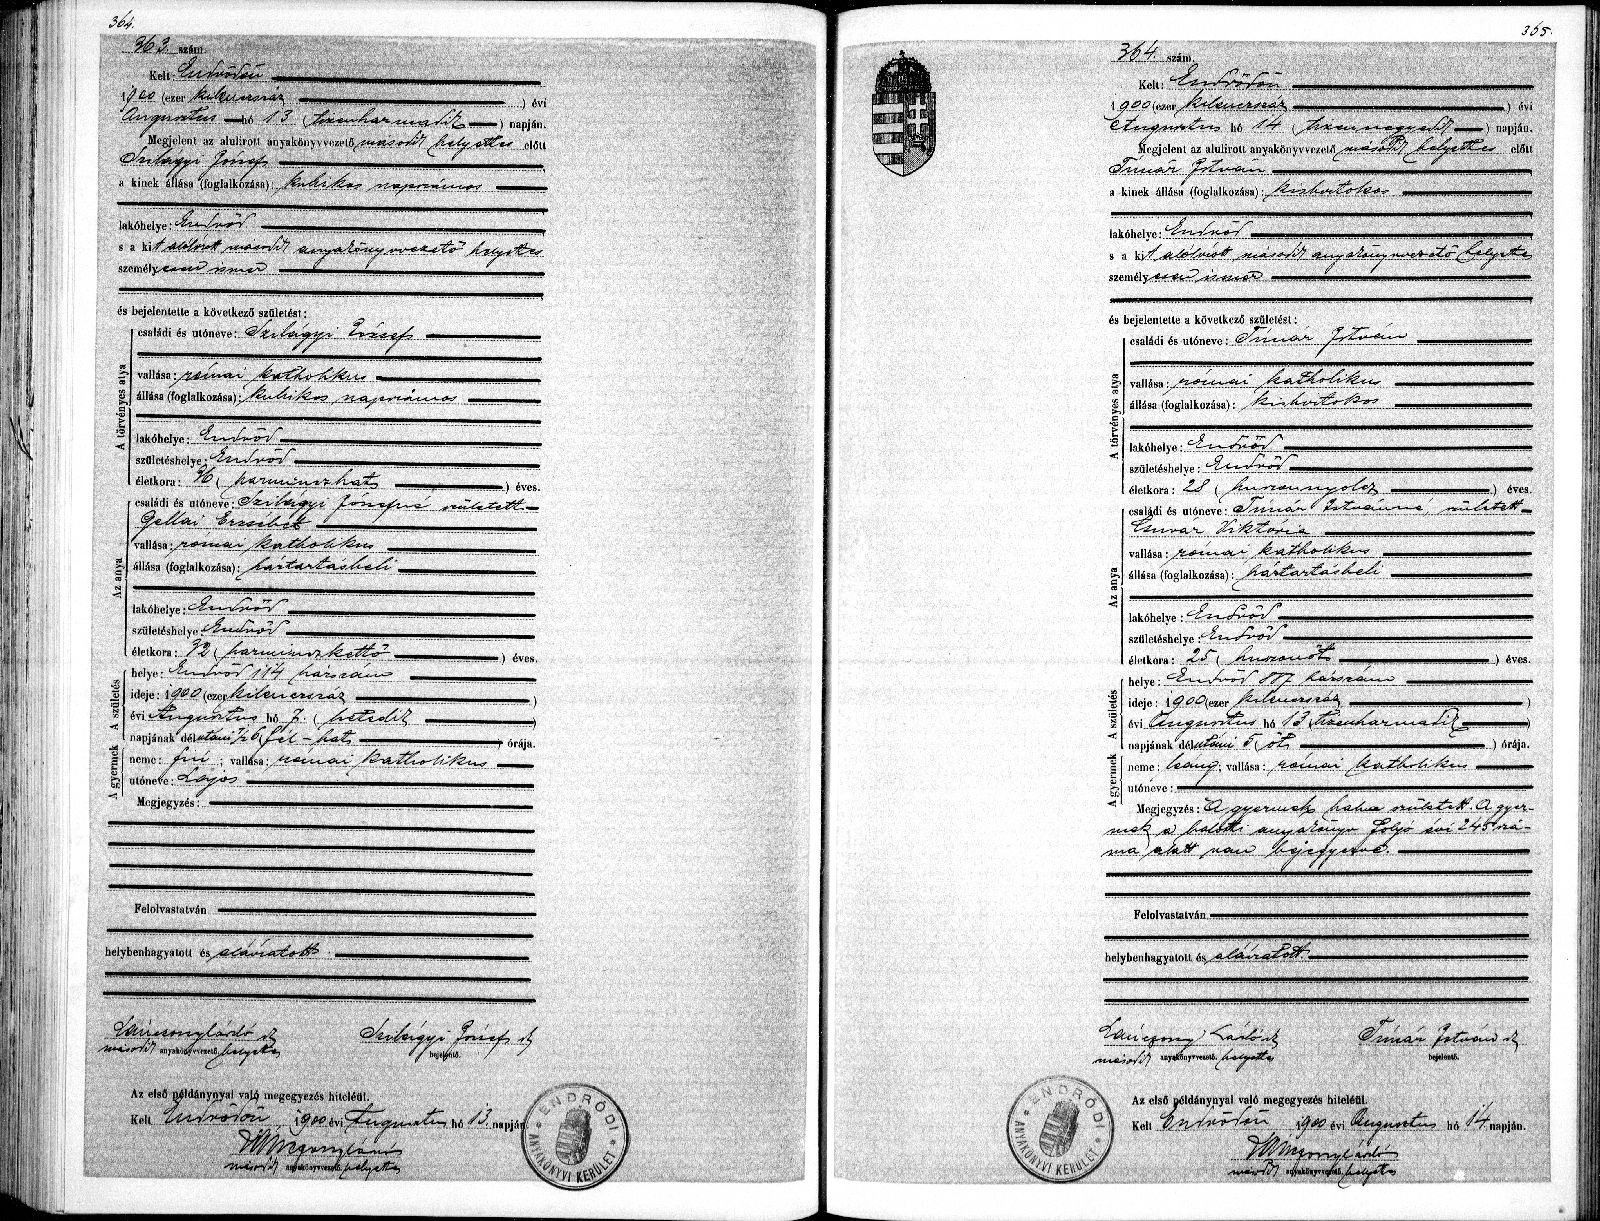 364.
363. szám.
Kelt: Endrődön
1900 (ezer kilencszáz ) évi
Augusztus hó 13 (tizenharmadik ) napján.
Megjelent az alulirott anyakönyvvezető második helyettes előtt
Szilágyi József
a kinek állása (foglalkozása): kubikos napszámos
lakóhelye: Endrőd
s a kit alólirott második anyakönyvvezető helyettes
személyesen ismer
és bejelentette a következő születést:
A törvényes atya
családi és utóneve: Szilágyi József
vallása: római katholikus
állása (foglalkozása): kubikos napszámos
lakóhelye: Endrőd
születéshelye: Endrőd
életkora: 36 (harminczhat ) éves.
Az anya
családi és utóneve: Szilágyi Józsefné született
Gellai Erzsébet
vallása: római katholikus
állása (foglalkozása): háztartásbeli
lakóhelye: Endrőd
születéshelye: Endrőd
életkora: 32 (harminczkettő ) éves.
A születés
helye: Endrőd 114 házszám
ideje: 1900 (ezer kilencszáz )
évi Augusztus hó 7. (hetedik )
napjának délutáni 1/2 6 (fél-hat ) órája.
A gyermek
neme: fiú; vallása: római katholikus
utóneve: Lajos
Megjegyzés:
Felolvastatván
helybenhagyatott és aláíratott.
második anyakönyvvezető helyettes
Szilágyi József sk
bejelentő.
Az első példánynyal való megegyezés hiteléül.
Kelt Endrődön 1900 évi Augusztus hó 13. napján
második anyakönyvvezető helyettes
ENDRŐDI ANYAKÖNYVI KERÜLET
365.
364. szám.
Kelt: Endrődön
1900 (ezer kilencszáz ) évi
Augusztus hó 14 (tizennegyedik ) napján.
Megjelent az alulirott anyakönyvvezető második helyettes előtt
Timár István
a kinek állása (foglalkozása): kisbirtokos
lakóhelye: Endrőd
s a kit alólirott második anyakönyvvezető helyettes
személyesen ismer
és bejelentette a következő születést:
A törvényes atya
családi és utóneve: Timár István
vallása: római katholikus
állása (foglalkozása): kisbirtokos
lakóhelye: Endrőd
születéshelye: Endrőd
életkora: 28 (huszonnyolcz ) éves.
Az anya
családi és utóneve: Timár Istvánné, született
Csuvár Viktória
vallása: római katholikus
állása (foglalkozása): háztartásbeli
lakóhelye: Endrőd
születéshelye: Endrőd
életkora: 25 (huszonöt ) éves.
A születés
helye: Endrőd 887 házszám
ideje: 1900 (ezer kilencszáz )
évi Augusztus hó 13 (tizenharmadik )
napjának délutáni 5 (öt ) órája.
A gyermek
neme: leány; vallása: római katholikus
utóneve:
Megjegyzés: A gyermek halva született. A gyer-
mek a halotti anyakönyv folyó évi 245 szá-
ma alatt van bejegyezve.
Felolvastatván
helybenhagyatott és aláíratott.
második anyakönyvvezető helyettes
Timár István sk
bejelentő.
Az első példánynyal való megegyezés hiteléül.
Kelt Endrődön 1900 évi Augusztus hó 14 napján.
második anyakönyvvezető helyettes
ENDRŐDI ANYAKÖNYVI KERÜLET